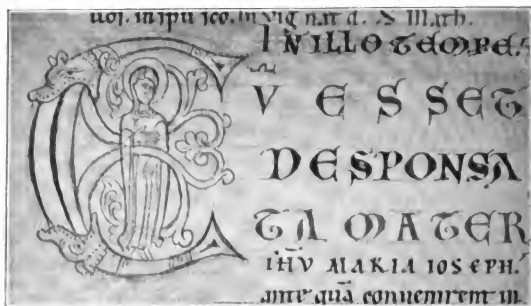 uoſ. In vig nat d. S Math.
IN ILLO TEMPE.
CV ESSET
DESPONSA
TA MATER
IHV MARIA IOSEPH.
ante quā conuenirent in